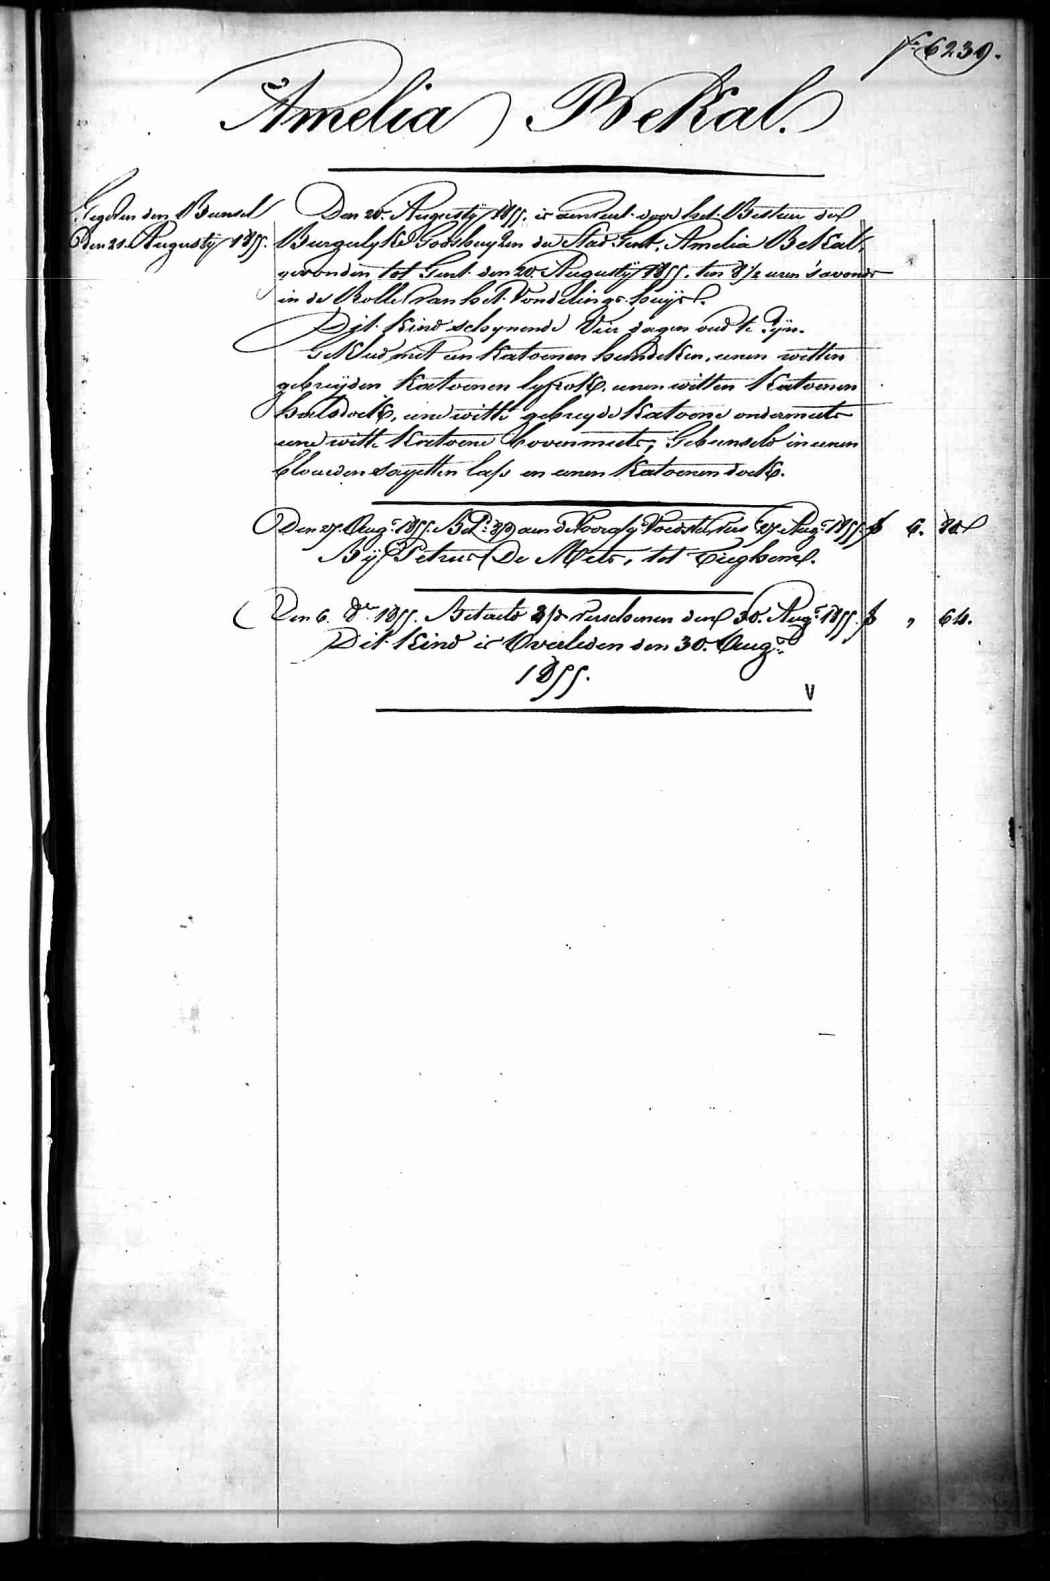 6239.
Amelia BeKal.
Gegeven den Bunsel
den 21. Augusty 1855.
Den 20. Augusty 1855. is aenveert door het Bestuer der
Burgelyke Godshuyzen der Stad Gent, Amelia BeKal,
gevonden tot Gent den 20. Augusty 1855. ten 8½ uren 's avonds
in de Rolle van het Vondelings-huijs.
Dit Kind schynende Vier dagen oud te zyn.
Gekleed met een Katoenen hemdeken, eenen witten
gebreijden Katoenen lyfrok, eenen witten Katoenen
halsdoek, eene witte gebreyde Katoene ondermuts
eene witte Katoene bovenmuts, Gebunseld in eenen
blauwen sayetten laps en eenen Katoenen doek.
Den 27. Augt. 1855. aen de Voedster 27 Augt. 1855. f 6.
Bij Petrus De Mets, tot Tieghem.
Den 6. 1855. Betaeld verschenen den 30. Augt. 1855. f „ 64.
Dit Kind is Overleden den 30. Augt.
1855.
V